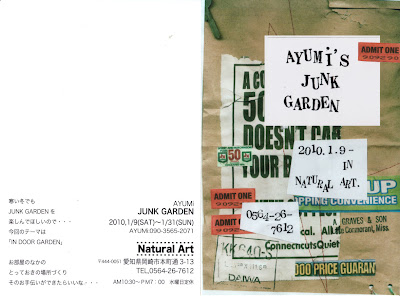 寒い冬でも
JUNK GARDEN を
楽しんでほしいので・・・
今回のテーマは
「IN DOOR GARDEN」
お部屋のなかの
とっておきの場所づくり
そのお手伝いができたらいいな・・・
AYUMI
JUNK GARDEN
2010,1/9(SAT)〜1/31(SUN)
AYUMI:090-3565-2071
Natural Art
〒444-0051 愛知県岡崎市本町通 3-13
TEL,0564-26-7612
AM10:30〜PM7:00 水曜日定休
AYUMi'S
JUNK
GARDEN
ADMIT ONE
A CO
50
DOESN'T CAR
YOUR B
2010.1.9-
IN
NATURAL ART.
50
UP
PPING CONVENIENCE
ADMIT ONE
GRAVES & SON
ical. All
ADMIT ONE
0564-26-
7612
Connecticuts Quiet
000 PRICE GUARAN
DAIWA